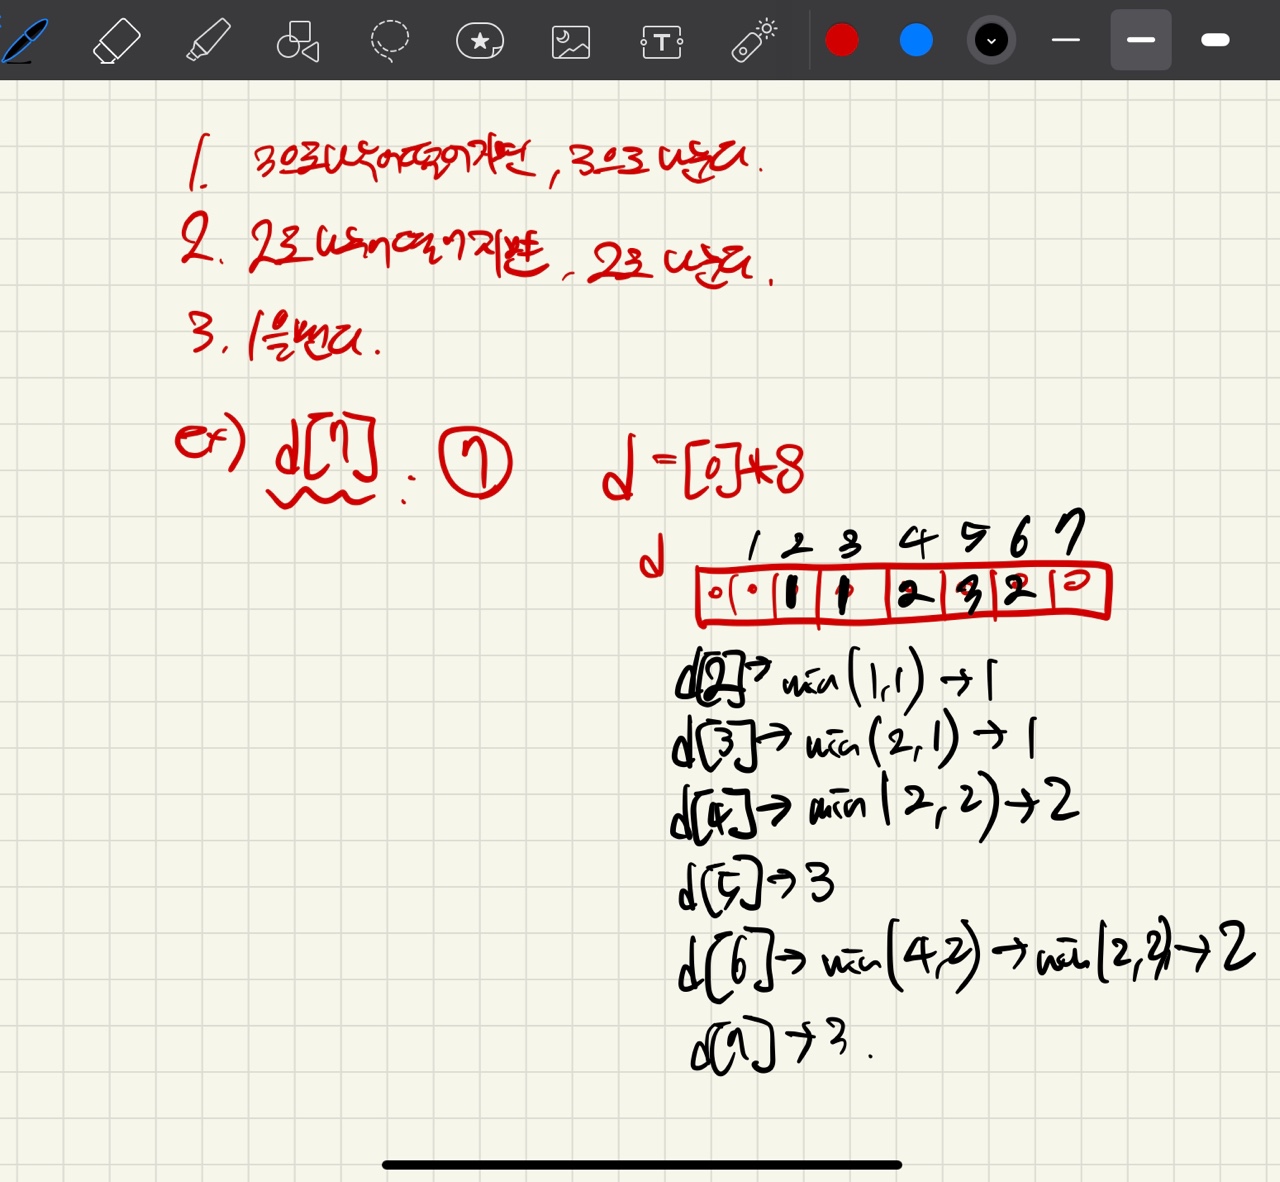 1. 3으로 나누어떨어지면, 3으로 나눈다.
2. 2로 나누어떨어지면, 2로 나눈다.
3. 1을 뺀다.
ex) d[7] : 7 d=[0]*8
1 2 3 4 5 6 7
d 0 0 1 1 2 3 2 0
d[2]→min(1,1)→1
d[3]→min(2,1)→1
d[4]→min(2,2)→2
d[5]→3
d[6]→min(4,2)→min(2,2)→2
d[7]→3.